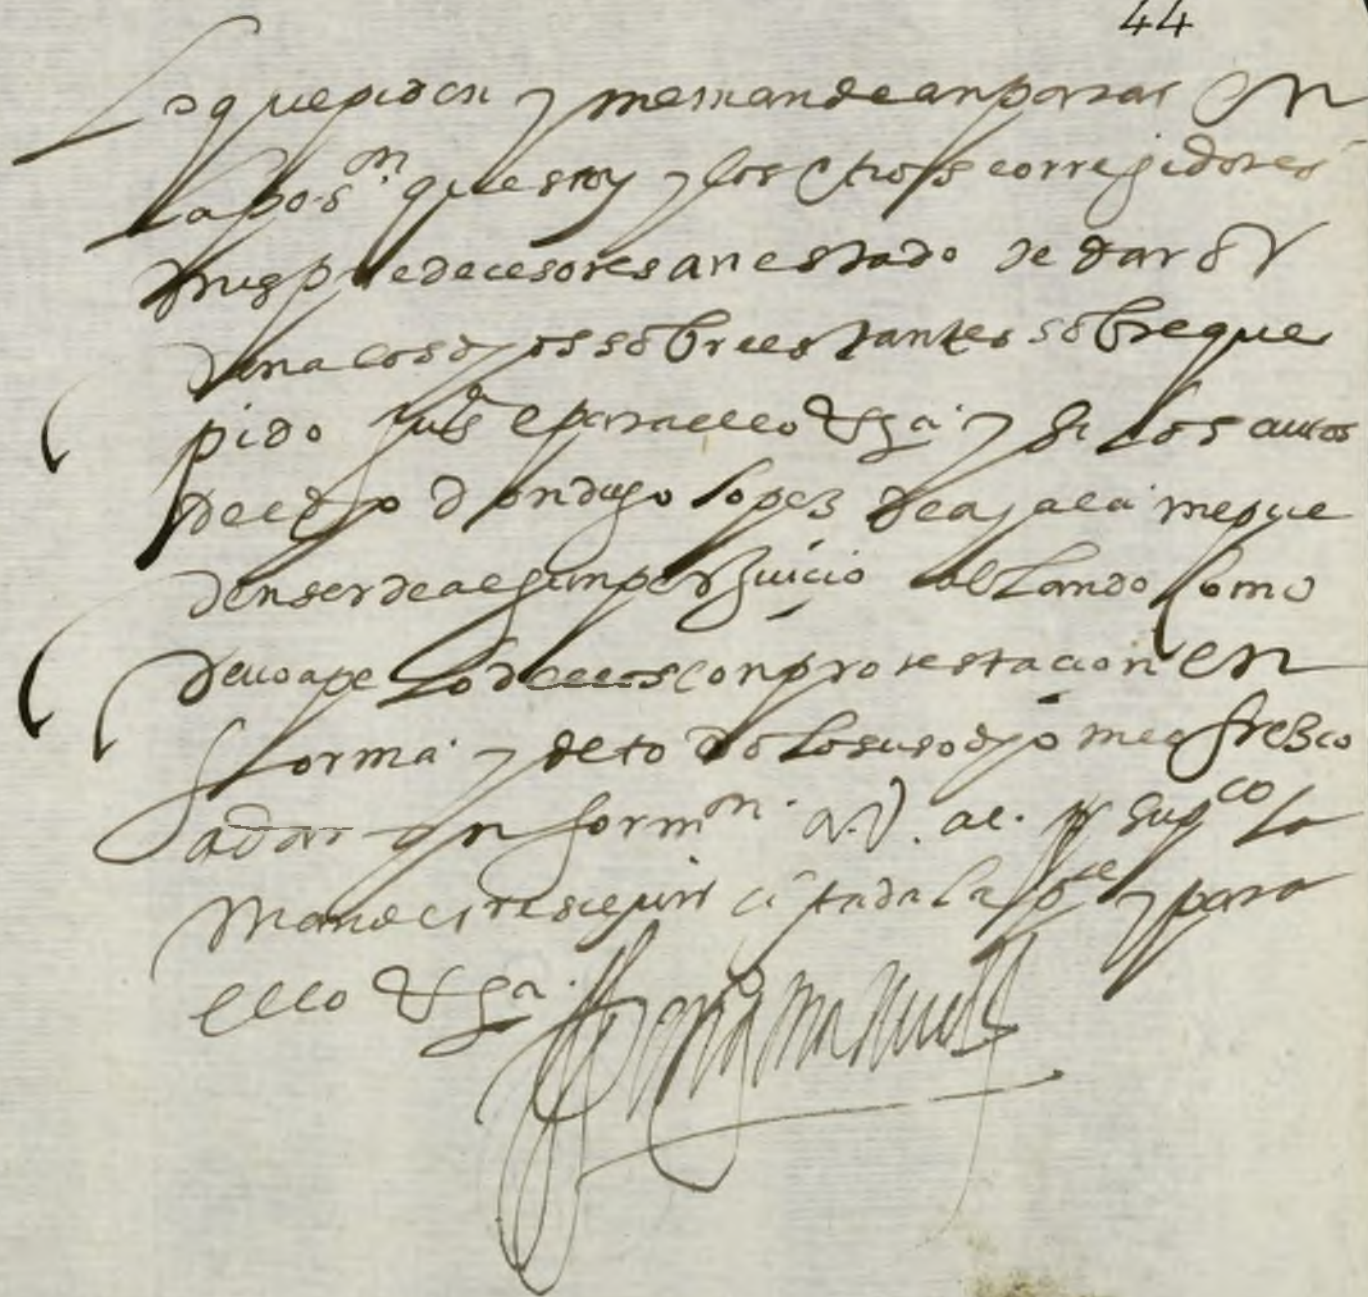 44
Lo que piden y me mande anparar En
la pos.on que estoy y los otros corregidores
mis predecesores an estado de dar or
dena los dhos sobre estantes sobre que
pido justa e para ello &ga y si los autos
de el dho don diego lopez de ayala me pue
den ser de algun perJuicio ablando como
devo ape lo de ellos con protestacion en
forma y de to do lo suso dho me ofrezco
a dar ynformon a V. al. y supco la
mande resceuir citada la pte y para
ello &ga